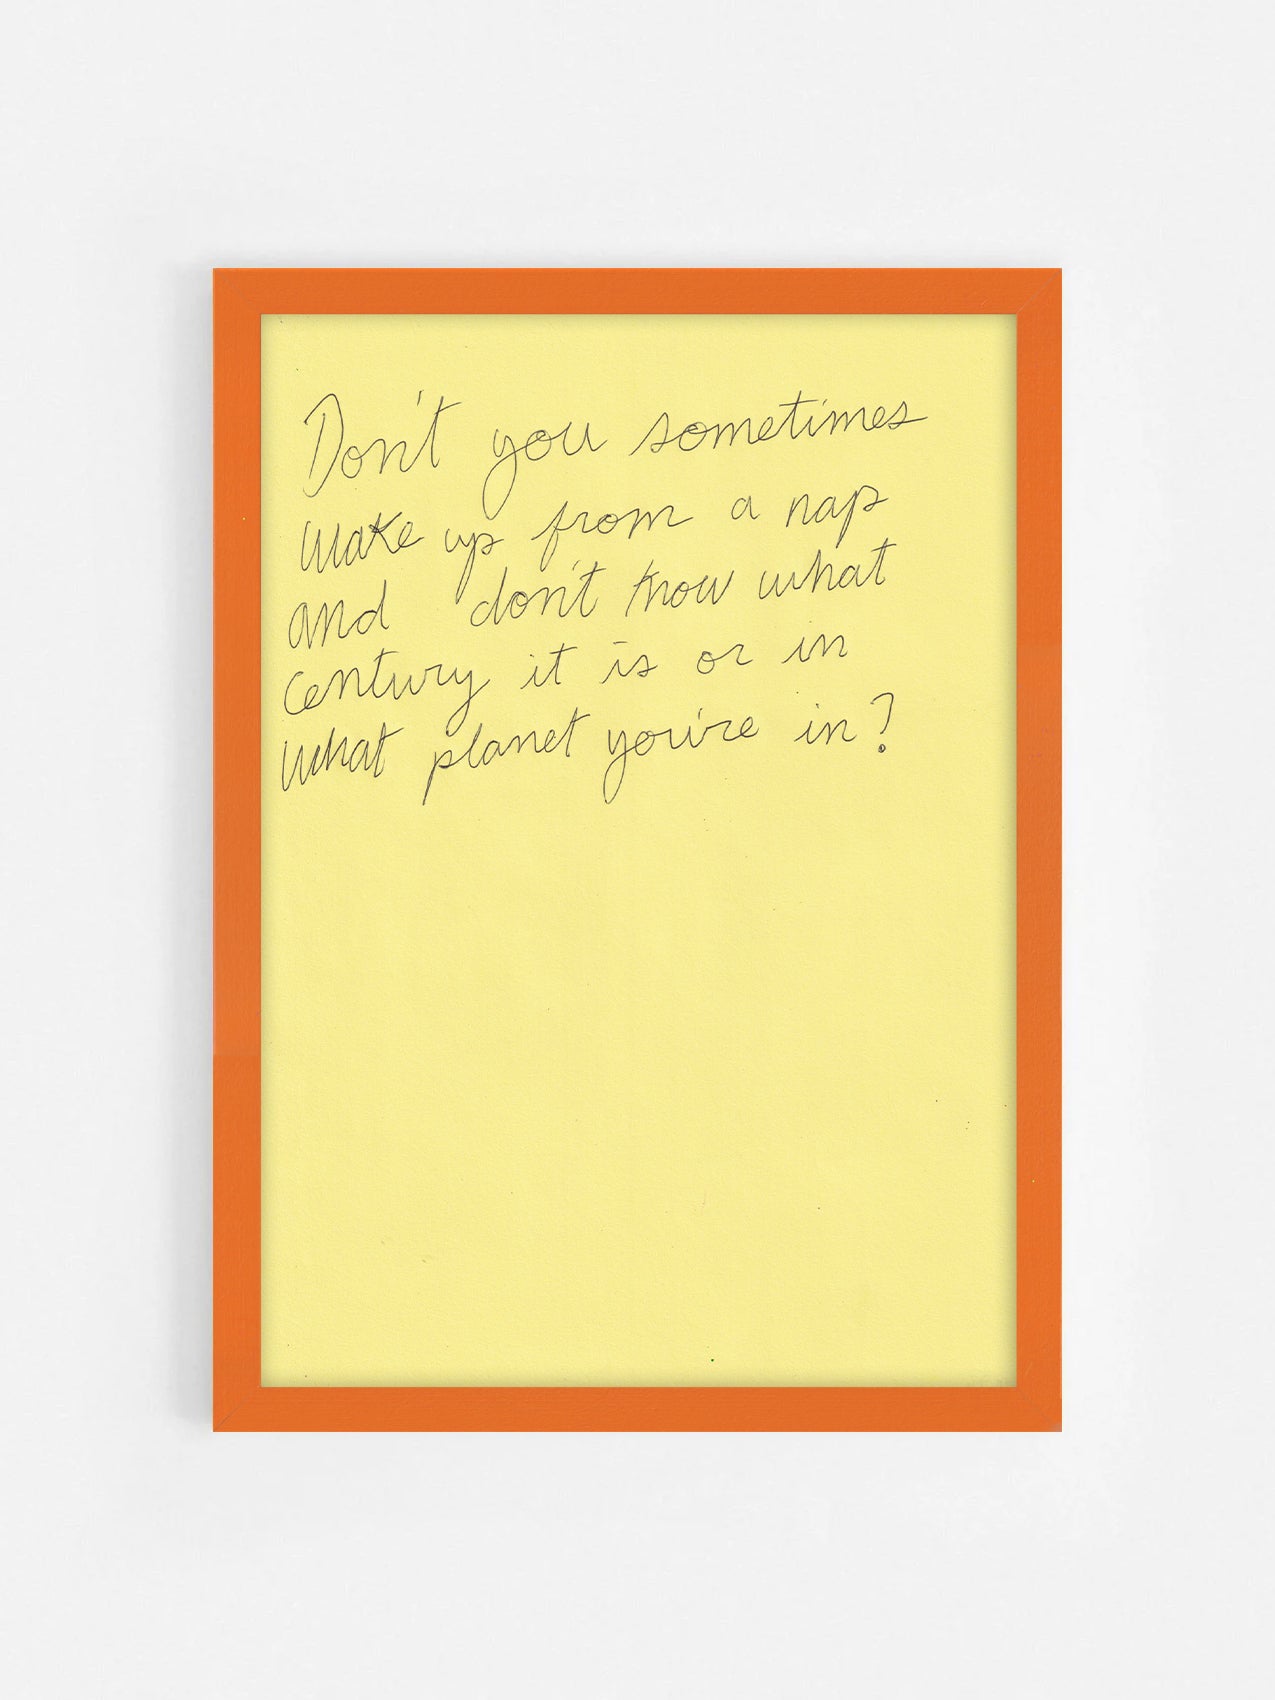 Don't you sometimes
wake up from a nap
and don't know what
century it is or in
what planet you're in?